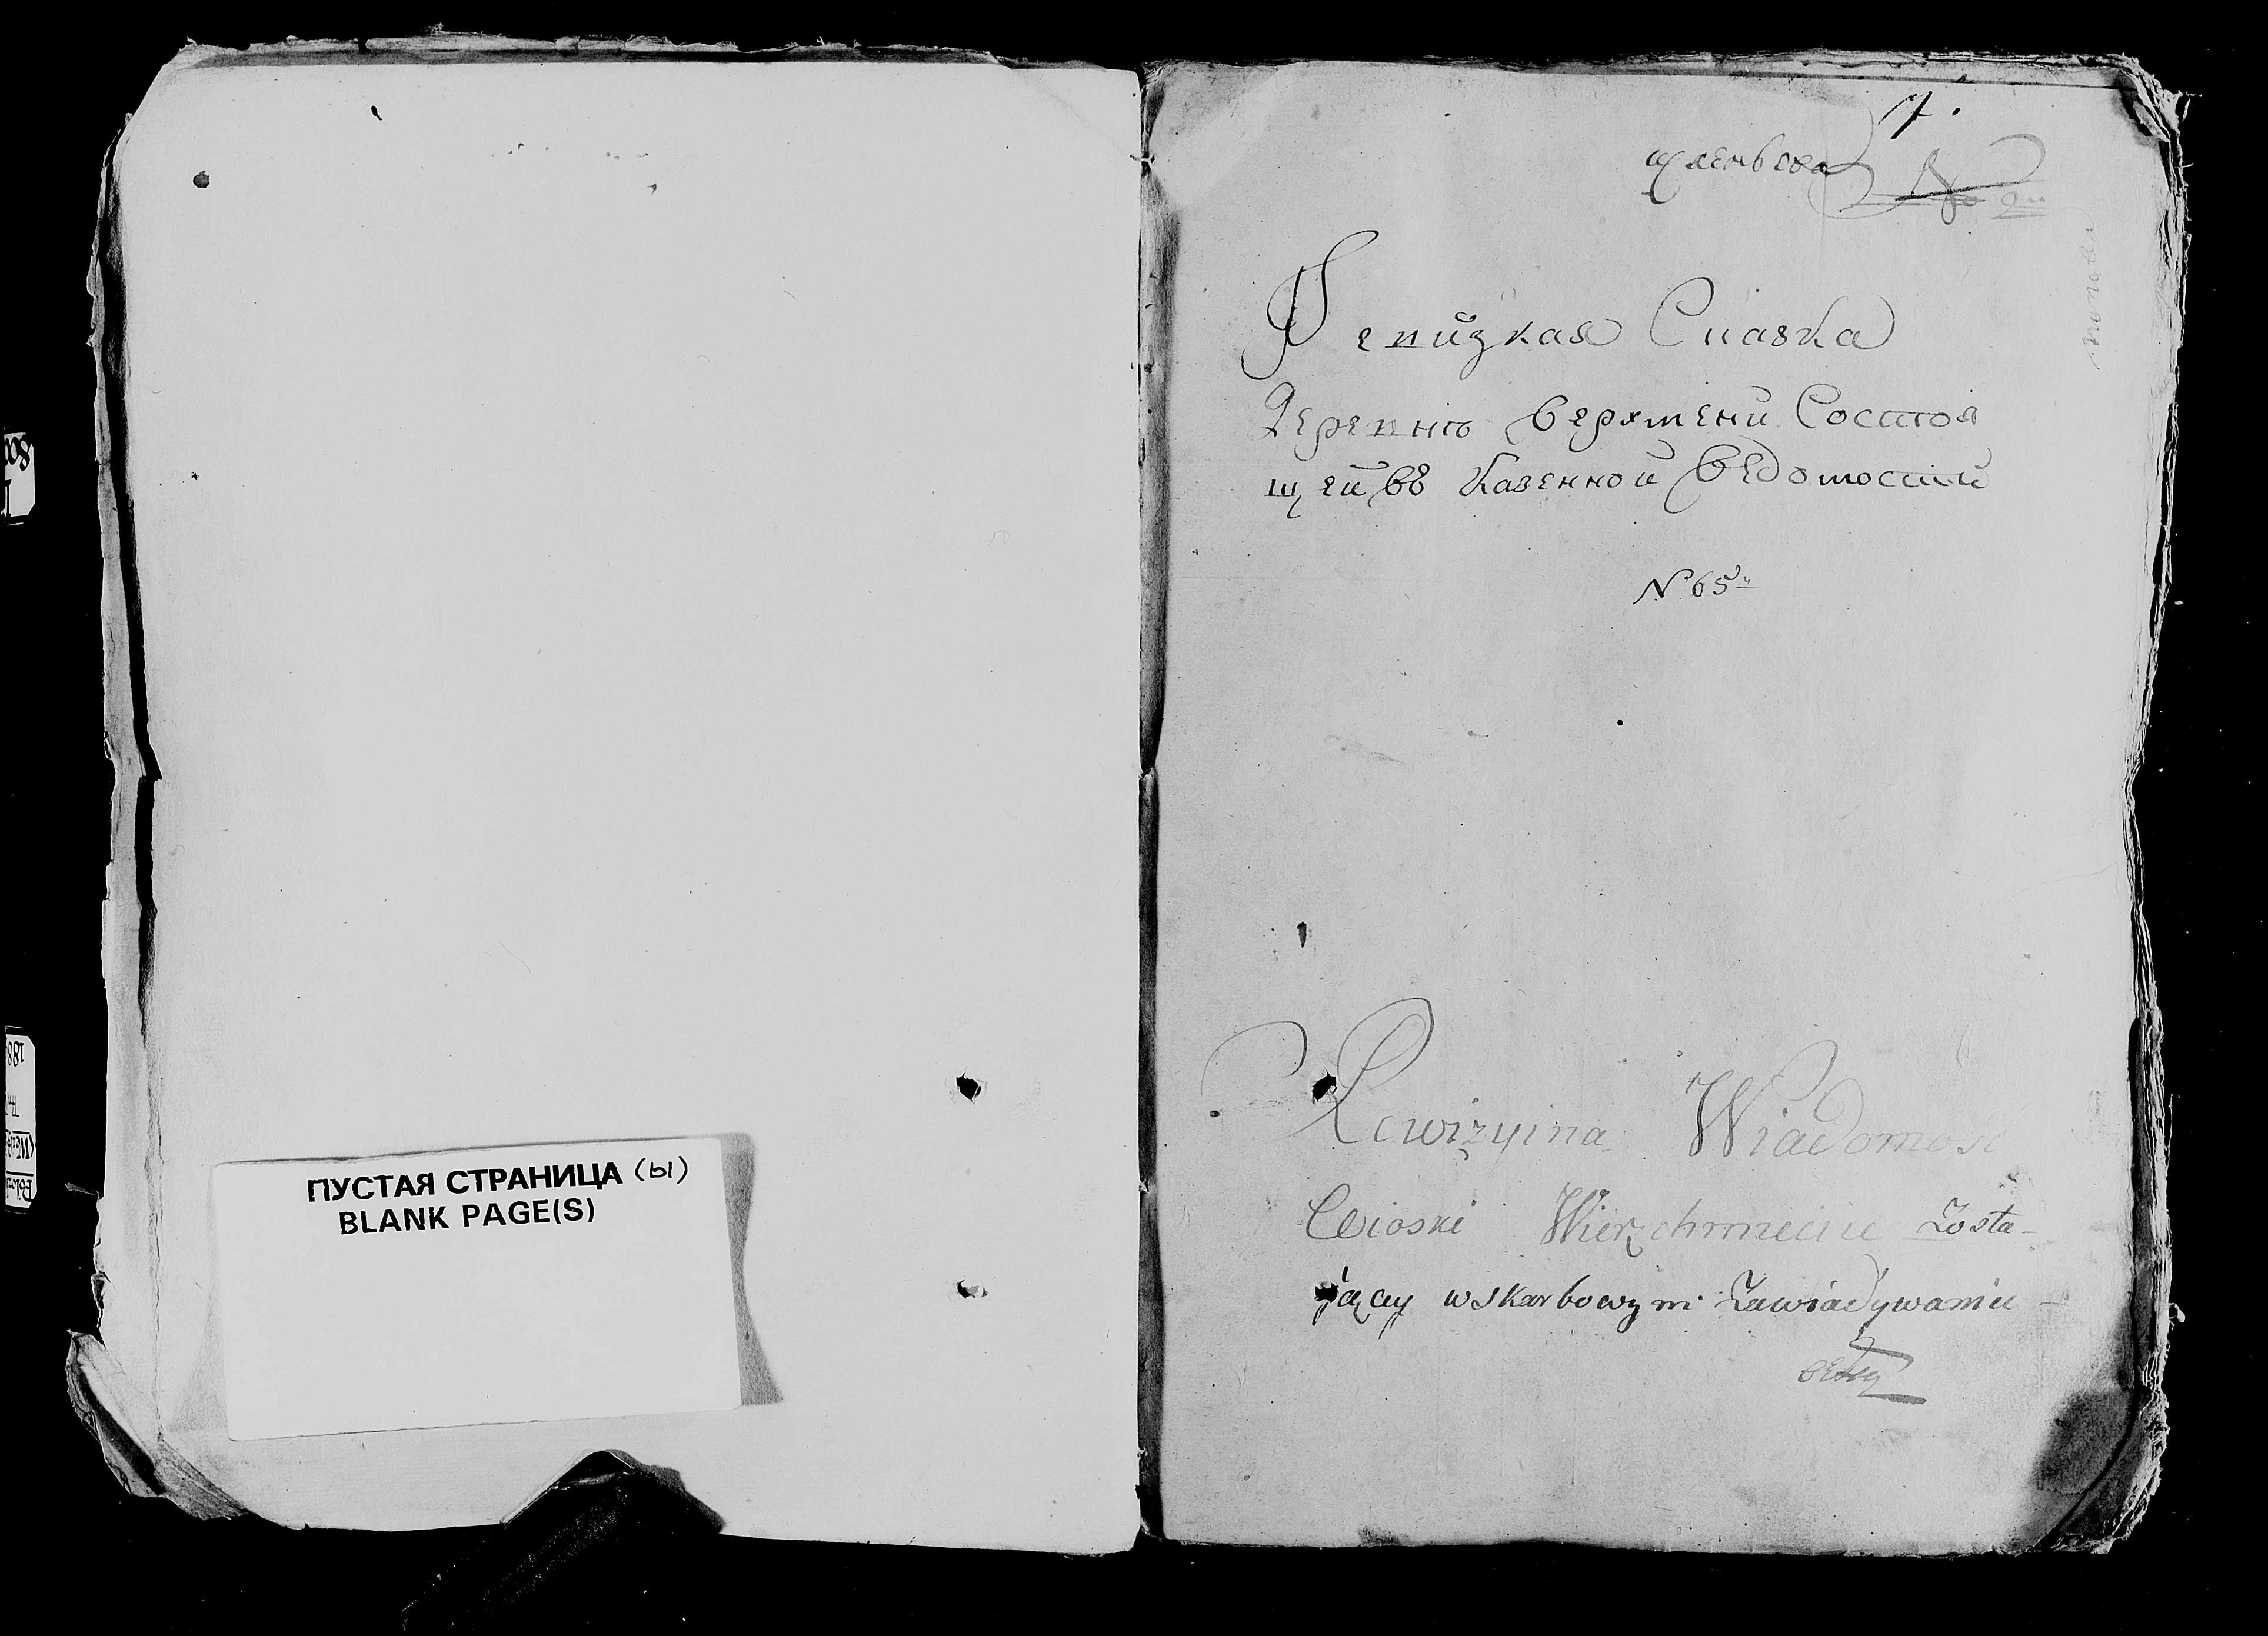 ПУСТАЯ СТРАНИЦА (ы)
BLANK PAGE(S)
7.
Ревизкая Сказка
Деревнѣ Верхмени Состоя
щей въ Казенной Ведомости
№ 65
Rewizyina Wiadomość
Wioski Wierzchmienie Zosta-
jącey w skarbowym Zawiadywaniu -